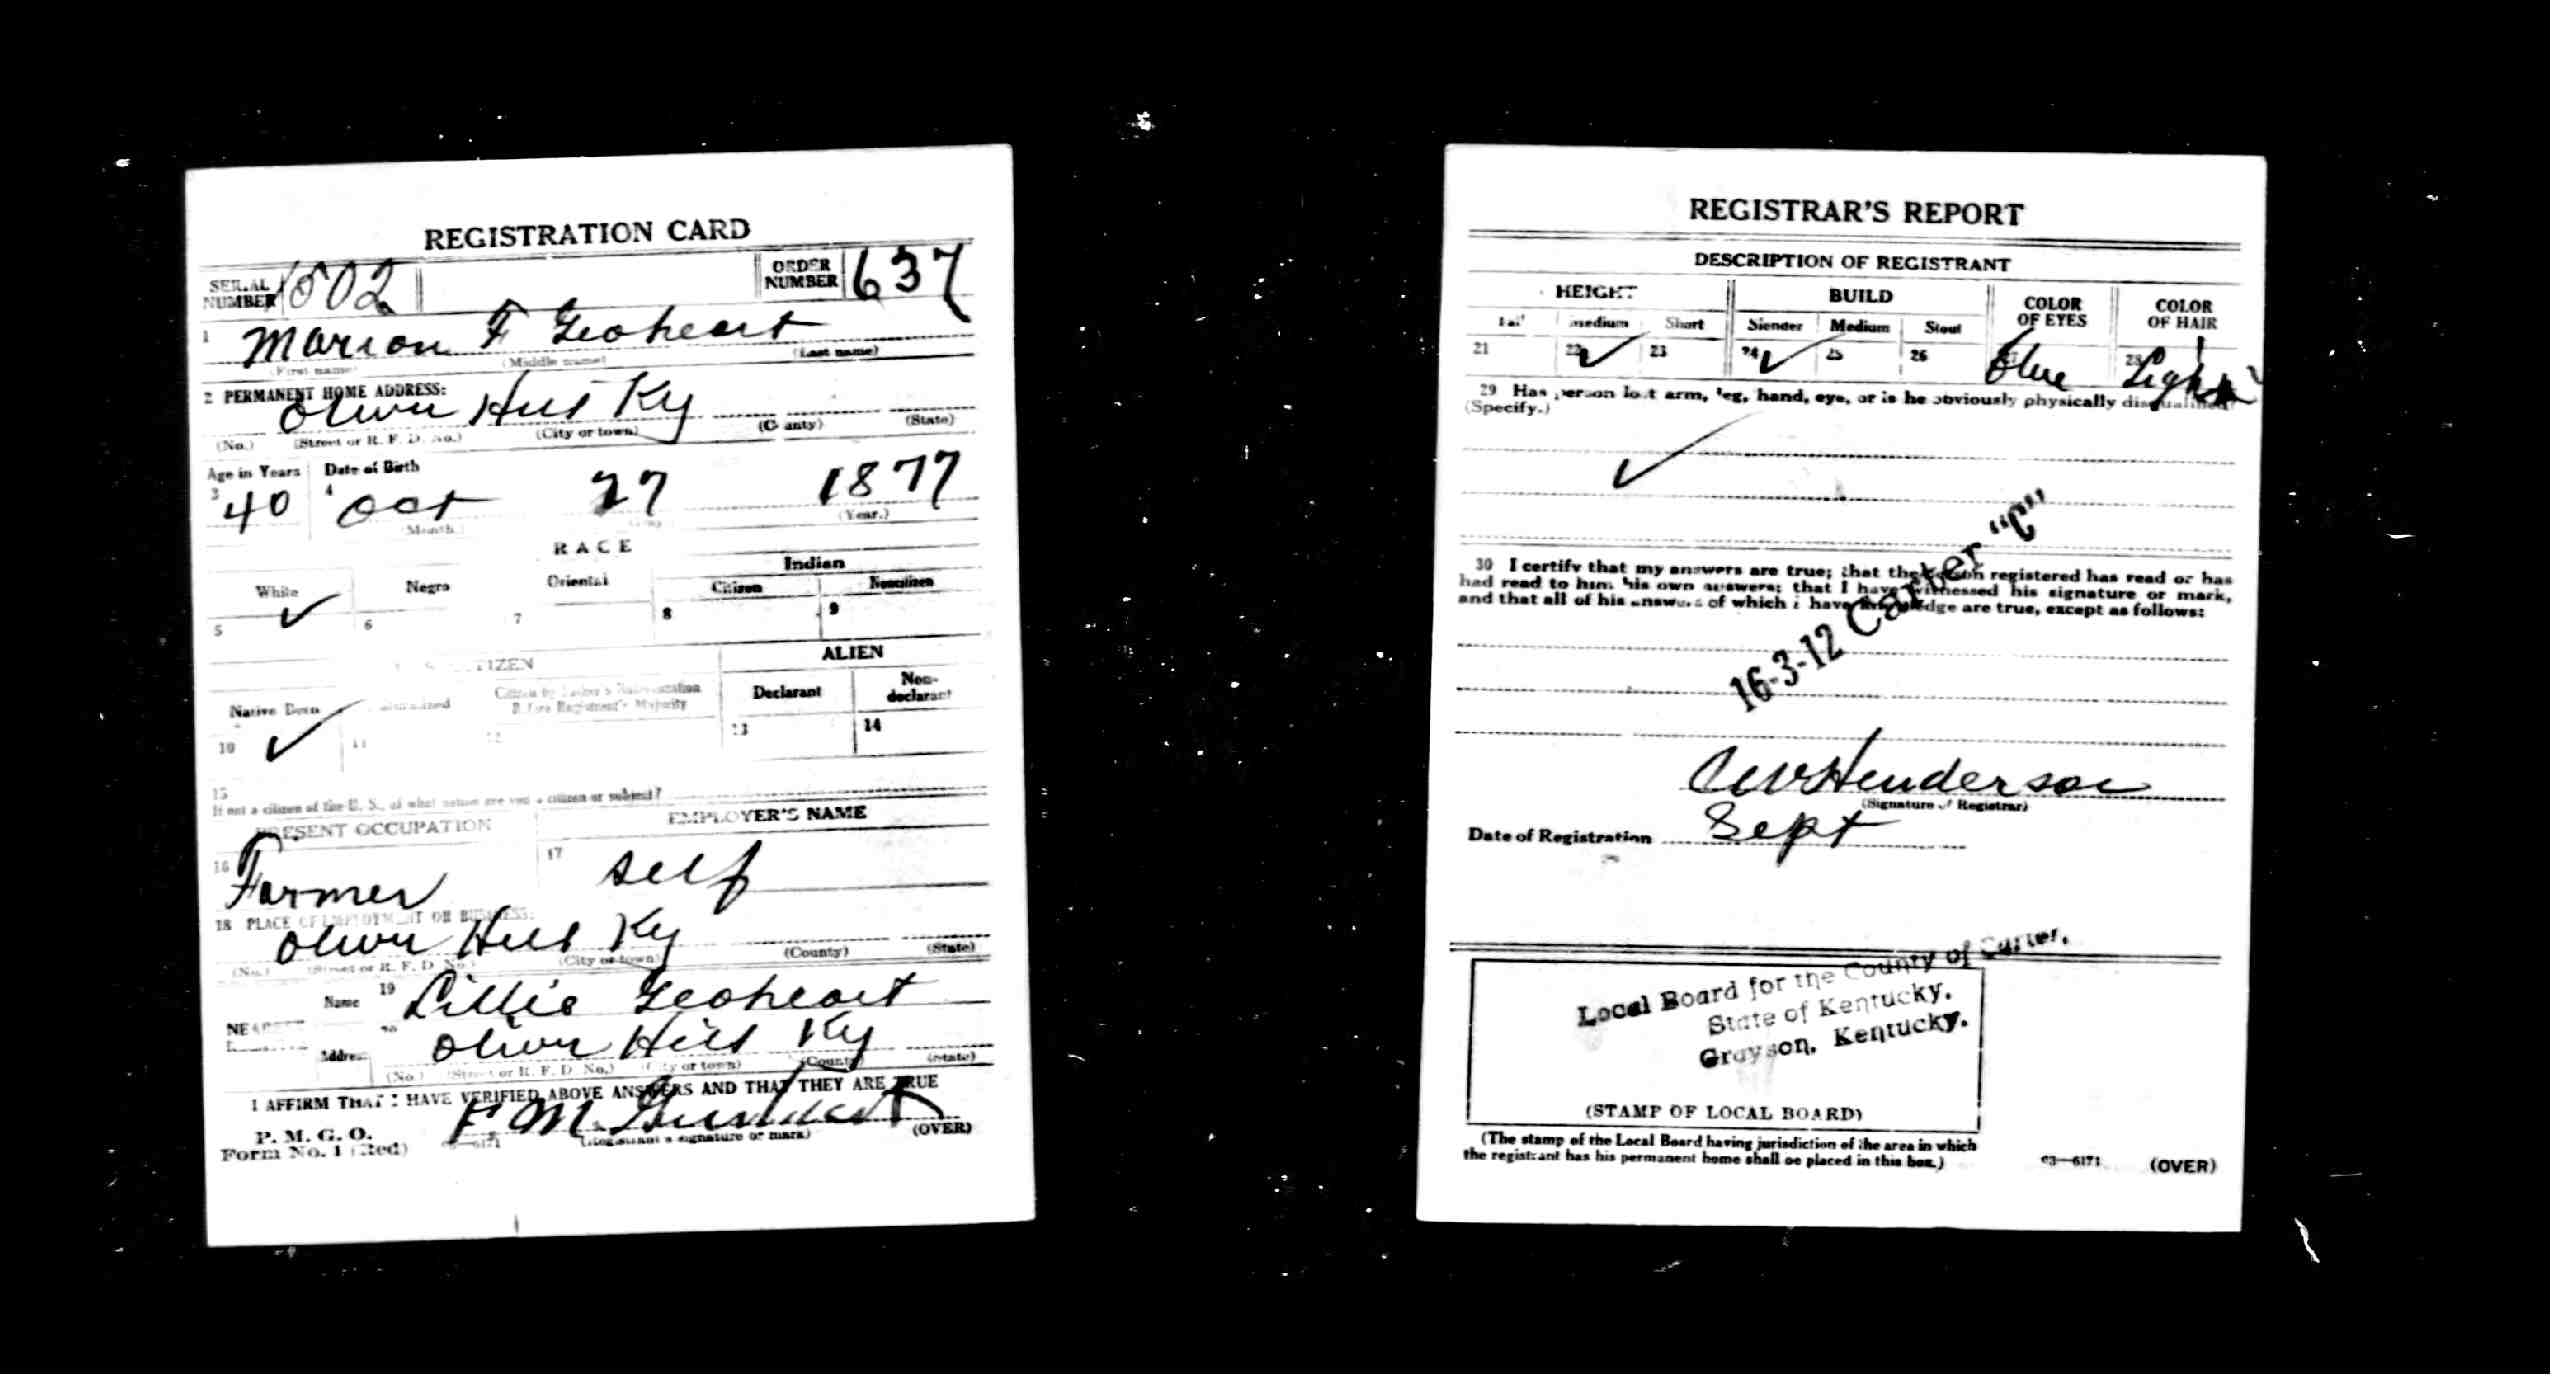 REGISTRATION CARD
SERIAL NUMBER 1502 ORDER NUMBER 637
1 Marion F Geoheart
(First name) (Middle name) (Last name)
2 PERMANENT HOME ADDRESS:
Olive Hill Ky
(No.) (Street or R. F. D. No.) (City or town) (County) (State)
Age in Years Date of Birth
3 40 4 Oct 27 1877
(Month.) (Day) (Year.)
RACE
White Negro Oriental Indian
Citizen Noncitizen
5 ✓ 6 7 8 9
U. S. CITIZEN ALIEN
Native Born Naturalized Citizen by Father's Naturalization Before Registrant's Majority Declarant Non-declarant
10 ✓ 11 12 13 14
15
If not a citizen of the U. S., of what nation are you a citizen or subject?
PRESENT OCCUPATION EMPLOYER'S NAME
16 Farmer 17 self
18 PLACE OF EMPLOYMENT OR BUSINESS:
Olive Hill Ky
(No.) (Street or R. F. D. No.) (City or town) (County) (State)
Name 19 Lillie Geoheart
NEAREST
Address 20 Olive Hill Ky
(No.) (Street or R. F. D. No.) (City or town) (County) (State)
I AFFIRM THAT I HAVE VERIFIED ABOVE ANSWERS AND THAT THEY ARE TRUE
P. M. G. O.
Form No. 1 (Red) F M (Registrant's signature or mark) (OVER)
REGISTRAR'S REPORT
DESCRIPTION OF REGISTRANT
HEIGHT BUILD COLOR OF EYES COLOR OF HAIR
Tall Medium Short Slender Medium Stout
21 22 ✓ 23 24 ✓ 25 26 27 Blue 28 Light
29 Has person lost arm, leg, hand, eye, or is he obviously physically disqualified?
(Specify.)
✓
30 I certify that my answers are true; that the person registered has read or has
had read to him his own answers; that I have witnessed his signature or mark,
and that all of his answers of which I have knowledge are true, except as follows:
16-3-12 Carter "C"
Henderson
(Signature of Registrar)
Date of Registration Sept
Local Board for the County of Carter,
State of Kentucky,
Grayson, Kentucky.
(STAMP OF LOCAL BOARD)
(The stamp of the Local Board having jurisdiction of the area in which
the registrant has his permanent home shall be placed in this box.)
03—6171 (OVER)